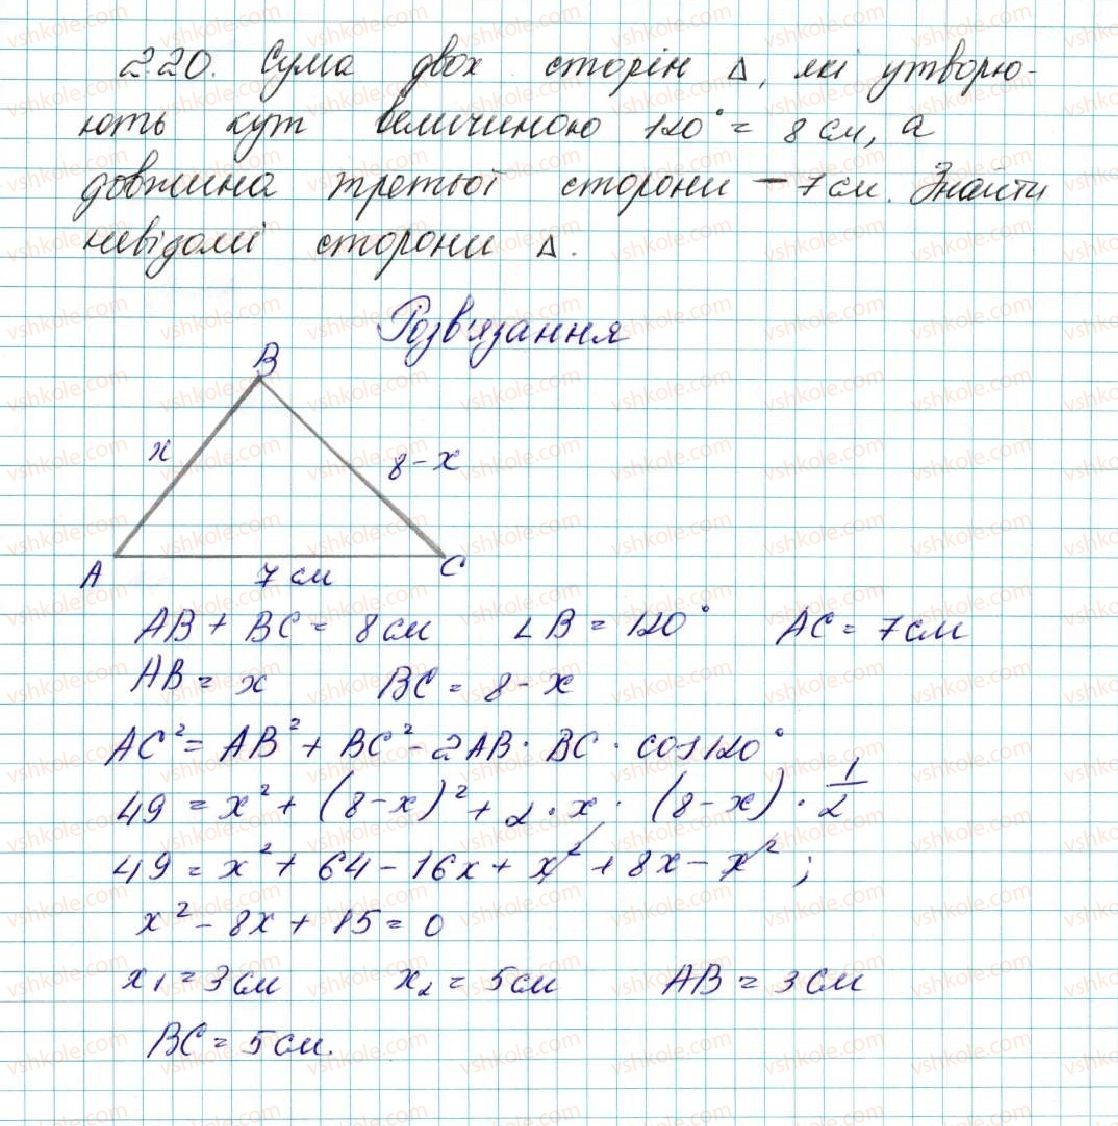 2.20. Сума двох сторін Δ, які утворю-
ють кут величиною 120° = 8 см, а
довжина третьої сторони – 7 см. Знайти
невідомі сторони Δ.
Розв'язання
B
x
8 - x
A
7 см
C
AB + BC = 8 см ∠B = 120° AC = 7 см
AB = x BC = 8 - x
AC² = AB² + BC² - 2AB · BC · cos 120°
49 = x² + (8 - x)² + 2 · x · (8 - x) · 1/2
49 = x² + 64 - 16x + x² + 8x - x² ;
x² - 8x + 15 = 0
x₁ = 3 см x₂ = 5 см AB = 3 см
BC = 5 см.
vshkole.com